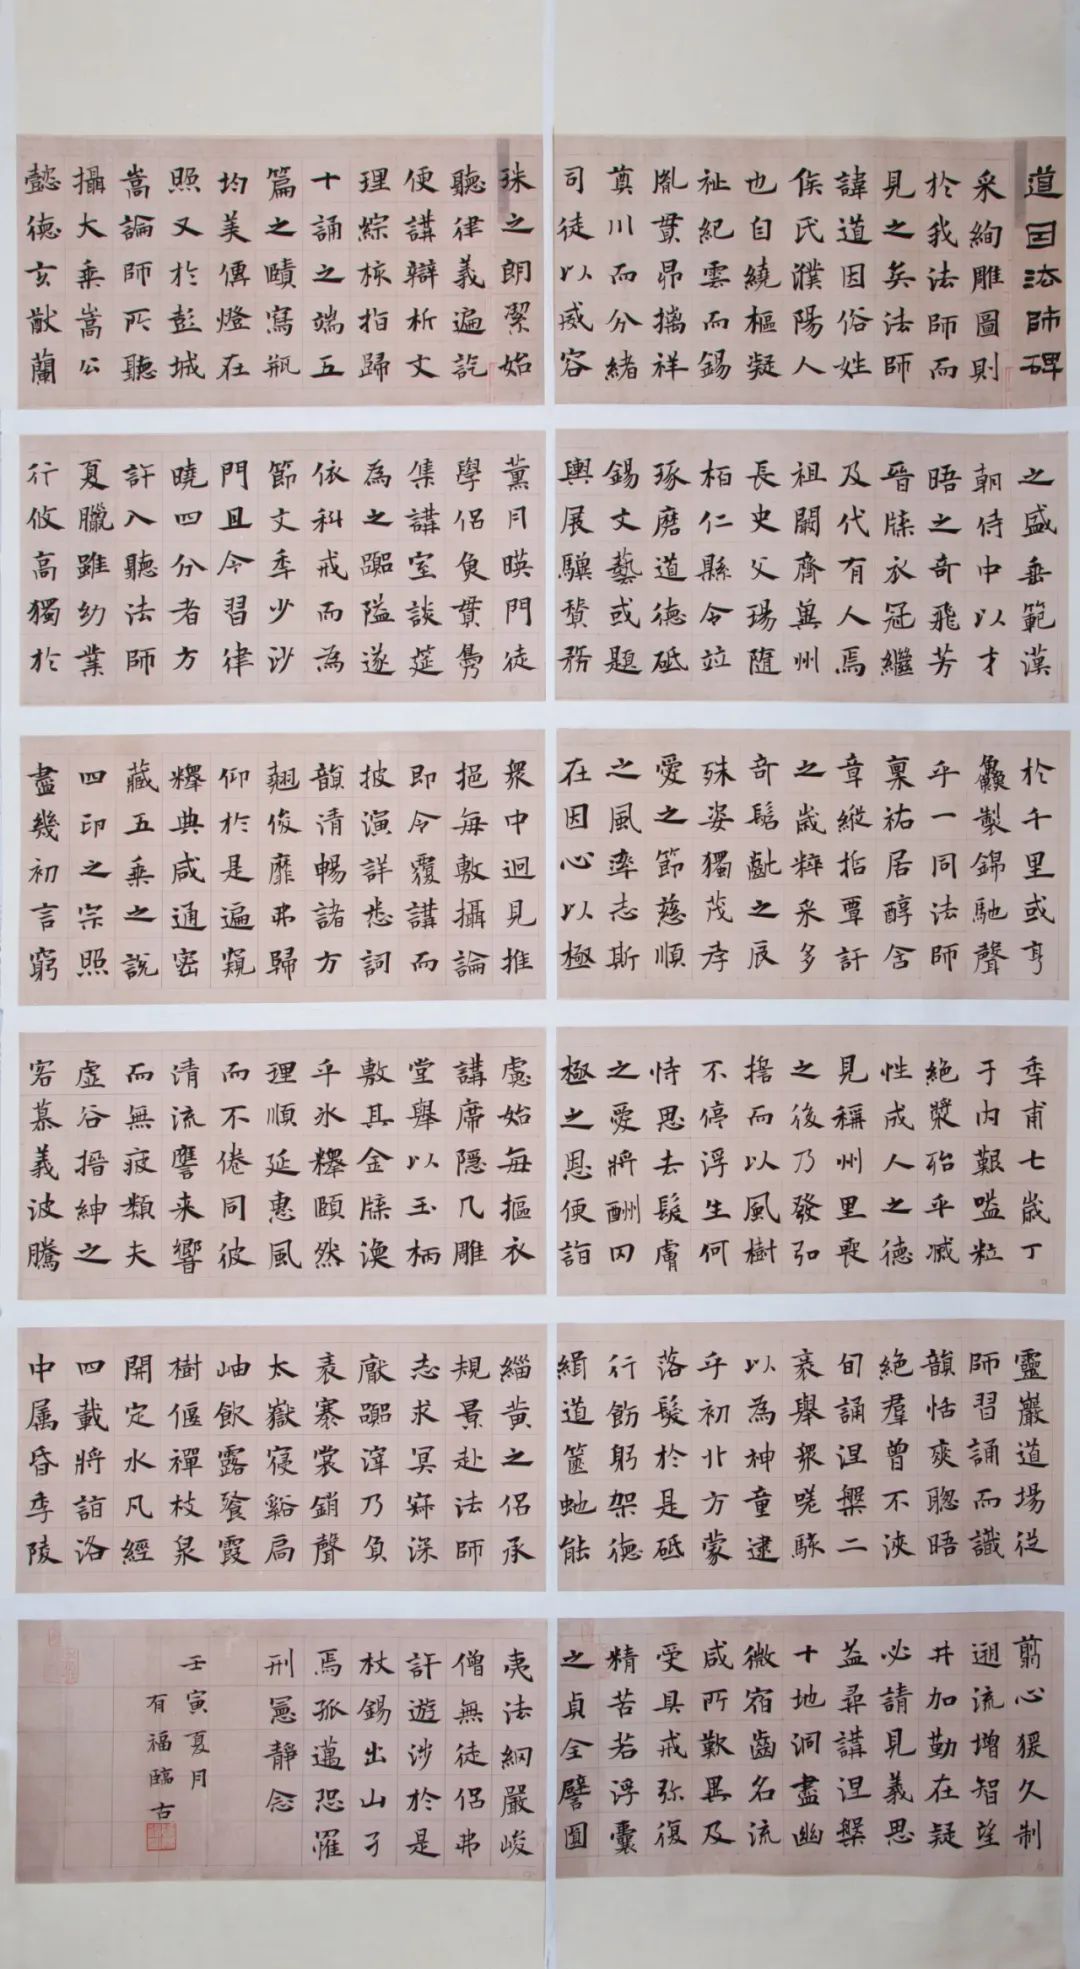 道因法師碑
采絢雕圖則
於我法師而
見之矣法師
諱道因俗姓
侯氏濮陽人
也自繞樞凝
祉紀雲而錫
胤貫昴摛祥
奠川而分緒
司徒以威容
之盛垂範漢
朝侍中以才
晤之奇飛芳
晉牒衣冠繼
及代有人焉
祖闕齊兾州
長史父瑒隨
柏仁縣令竝
琢磨道德砥
錫文藝或題
輿展驥贊務
於千里或亨
鱻製錦馳聲
乎一同法師
稟祐居醇含
章縱哲覃訏
之歲粹采多
奇髫齔之辰
殊姿獨茂孝
愛之節慈順
之風率志斯
在因心以極
秊甫七歲丁
于內艱嗌粒
絕漿殆乎滅
性成人之德
見稱州里喪
之後乃發弘
搯而以風樹
不停浮生何
恃思去髮膚
之愛將酬罔
極之恩便詣
靈巖道場從
師習誦而識
韻恬爽聰晤
絕羣曾不浹
旬誦涅槃二
袠舉衆嗟駭
以為神童逮
乎初北方蒙
落髮於是砥
行飭躬架德
緝道篋虵能
翦心猨久制
遡流增智望
井加勤在疑
必請見義思
益尋講涅槃
十地洞盡幽
微宿齒名流
咸所歎異及
受具戒弥復
精苦若浮囊
之貞全譬圓
珠之朗潔始
聽律義遍訖
便講辯析文
理綜核指歸
十誦之端五
篇之賾寫瓶
均美傳燈在
照又於彭城
嵩論師所聽
攝大乘嵩公
懿德玄猷蘭
薰月暎門徒
學侶負貫曑
集講室談筵
為之躢隘遂
依科戒而為
節文秊少沙
門且令習律
曉四分者方
許入聽法師
夏臘雖幼業
行攸高獨於
衆中迥見推
挹每敷攝論
即令覆講而
披演詳悉詞
韻清暢諸方
翹俊靡弗歸
仰於是遍窺
釋典咸通密
藏五乘之說
四印之宗照
盡幾初言窮
慮始每摳衣
講席隱几雕
堂舉以玉柄
敷其金牒渙
乎冰釋頤然
理順延惠風
而不倦同彼
清流譍来響
而無疲類夫
虛谷搢紳之
客慕義波騰
緇黃之侶承
規景赴法師
志求冥寂深
厭躢滓乃負
袠褰裳銷聲
太嶽寑谿扃
岫飲露餐霞
樹偃禪枝泉
開定水凡經
四載將詣洛
中属昏季陵
夷法網嚴峻
僧無徒侶弗
許遊涉於是
杖錫出山孑
焉孤邁恐罹
刑憲靜念
壬寅夏月
有福臨古